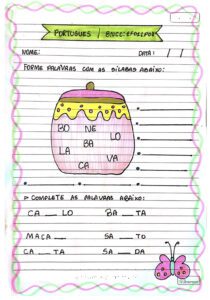 PORTUGUÊS | BNCC: EF02LP02
NOME: DATA: / /
FORME PALAVRAS COM AS SÍLABAS ABAIXO:
BO NE
LO
LA BA
VA
CA
COMPLETE AS PALAVRAS ABAIXO:
CA __ LO BA __ TA
MACA __ SA __ TO
CA __ TA SA __ DA